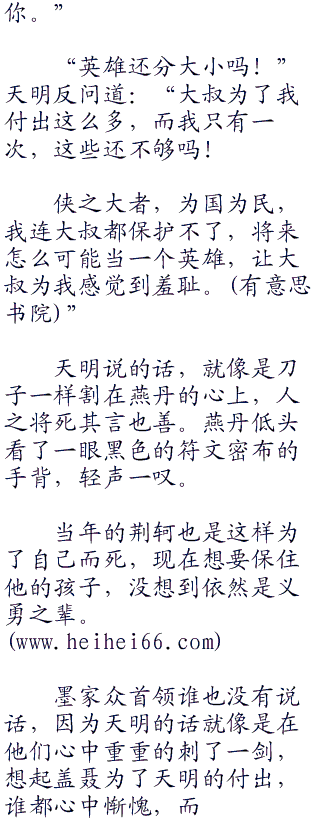 你。”
“英雄还分大小吗！”
天明反问道：“大叔为了我
付出这么多，而我只有一
次，这些还不够吗！
侠之大者，为国为民，
我连大叔都保护不了，将来
怎么可能当一个英雄，让大
叔为我感觉到羞耻。(有意思
书院)”
天明说的话，就像是刀
子一样割在燕丹的心上，人
之将死其言也善。燕丹低头
看了一眼黑色的符文密布的
手背，轻声一叹。
当年的荆轲也是这样为
了自己而死，现在想要保住
他的孩子，没想到依然是义
勇之辈。
(www.heihei66.com)
墨家众首领谁也没有说
话，因为天明的话就像是在
他们心中重重的刺了一剑，
想起盖聂为了天明的付出，
谁都心中惭愧，而